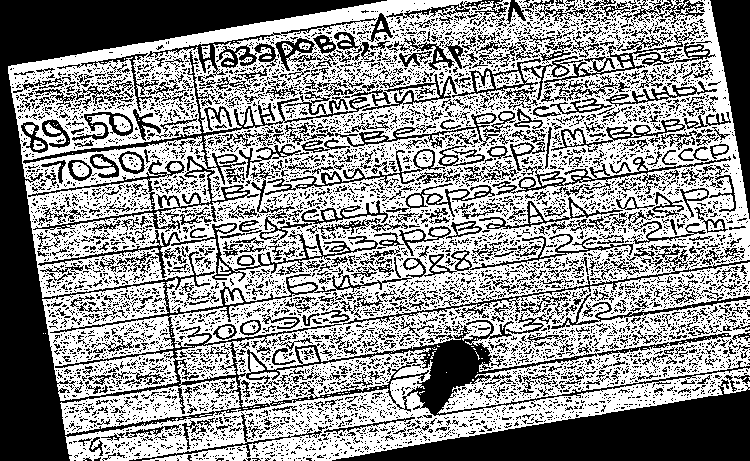 Назарова, А Л
и др
89-50К МИНГ имени И М Губкина в
7090 содружестве с родственны-
ми вузами. [Обзор] / М-во высш
и сред. спец. образования СССР
; [Доц. Назарова А. Л. и др.]
- М. Б. и., 1988 - 72 с., 21 см.
300 экз. Экз. №2
ДСП